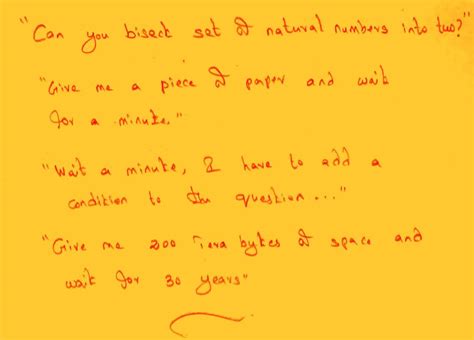 "Can you biseck set of natural numbers into two?"
"Give me a piece of paper and wait
for a minute."
"Wait a minute, I have to add a
condition to the question..."
"Give me 200 Tera bytes of space and
wait for 30 years"